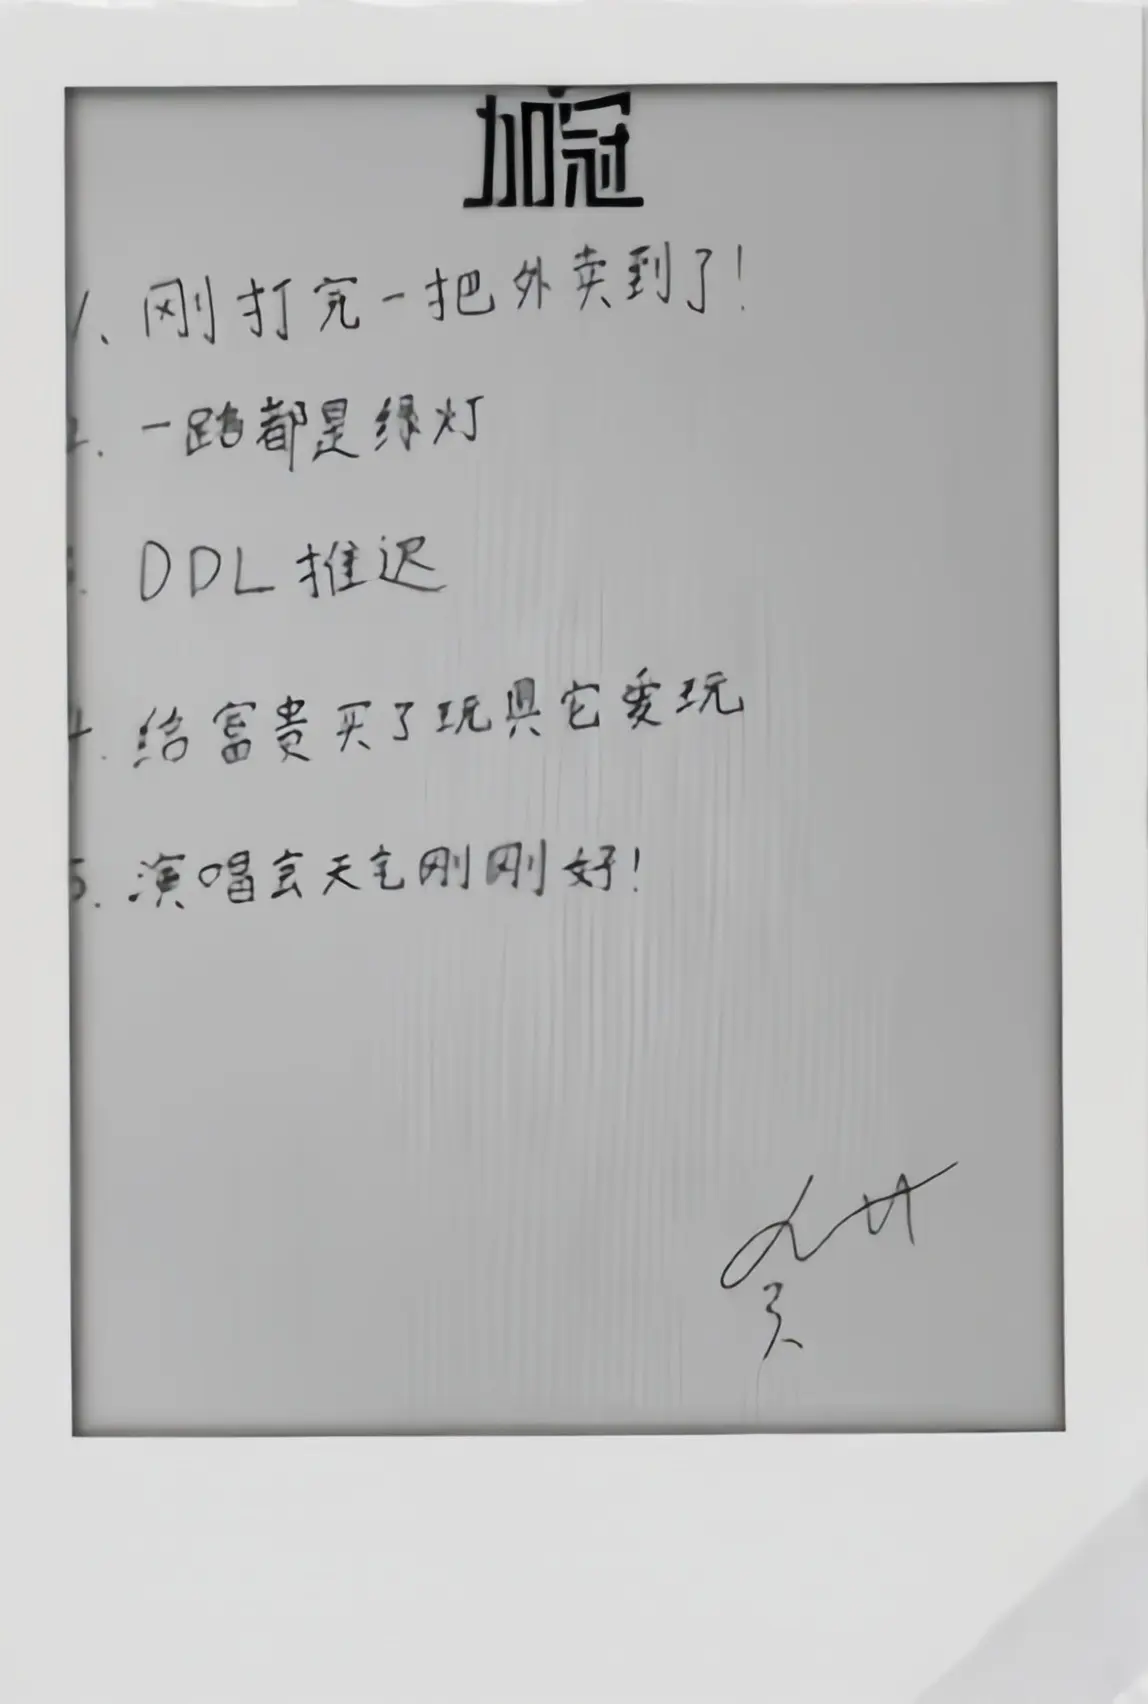 加冠
1、刚打完一把外卖到了！
2. 一路都是绿灯
3. DDL推迟
4. 给富贵买了玩具它爱玩
5. 演唱会天气刚刚好！